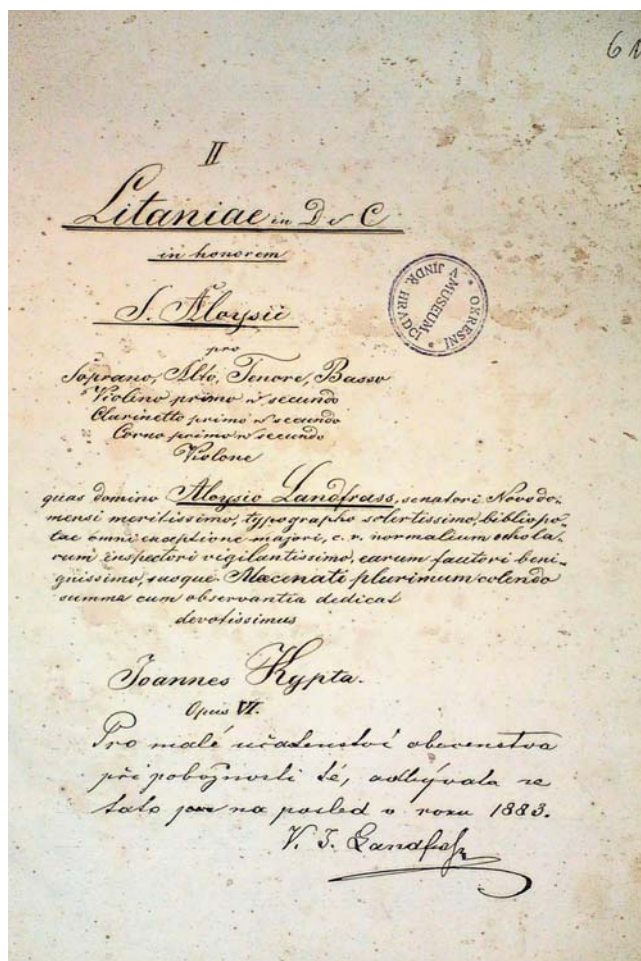 61
II
Litaniae in D et C
in honorem
S. Aloysii
OKRESNÍ MUSEUM V JINDŘ. HRADCI
pro
Soprano, Alto, Tenore, Basso
Violino primo et secundo
Clarinetto primo et secundo
Corno primo et secundo
Violone
quas domino Aloysio Landfrass, senatori Novodo-
mensi meritissimo, typographo solertissimo, bibliopo-
lae omni exceptione majori, c. r. normalium schola-
rum inspectori vigilantissimo, earum fautori beni-
gnissimo, suoque Maecenati plurimum colendo
summa cum observantia dedicat
devotissimus
Joannes Kypta.
Opus VI.
Pro malé účastenství obecenstva
při pobožnosti té, odbývala se
tato na posled v roku 1883.
V. J. Landfraß